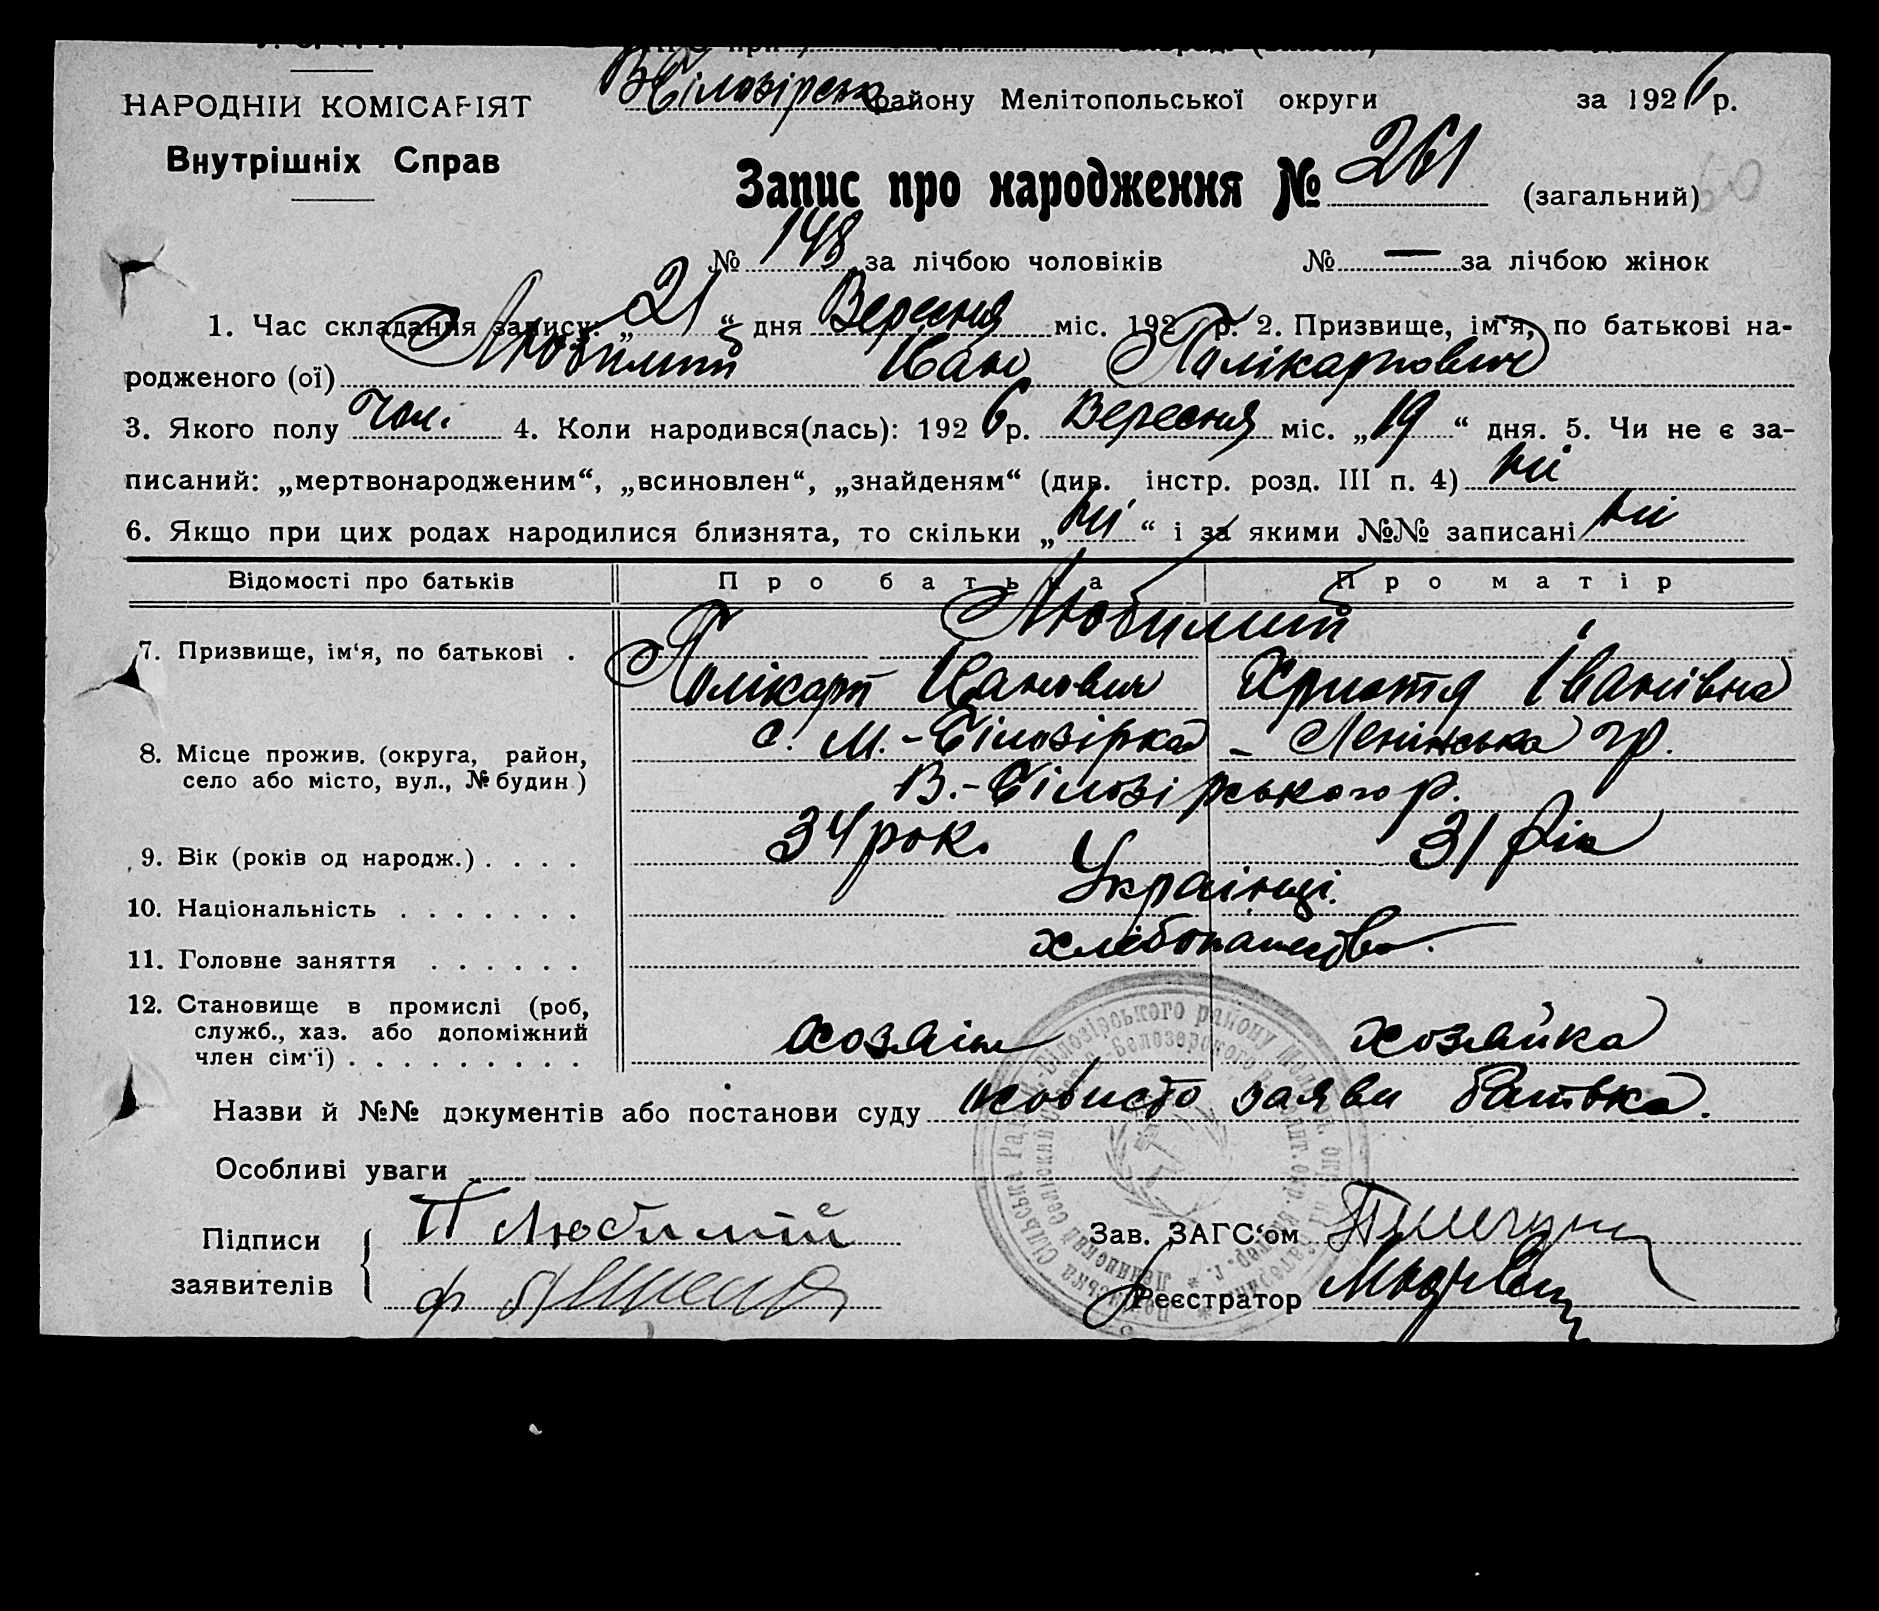 НАРОДНІЙ КОМІСАРІЯТ
Внутрішніх Справ
В Білозірськ району Мелітопольської округи за 1926 р.
Запис про народження № 261 (загальний) 60
№ 148 за лічбою чоловіків № — за лічбою жінок
1. Час складання запису: „21“ дня Вересня міс. 1926 р. 2. Призвище, ім'я, по батькові на-
родженого (ої) Любимий Іван Полікарпович
3. Якого полу чол. 4. Коли народився(лась): 1926 р. Вересня міс. „19“ дня. 5. Чи не є за-
писаний: „мертвонародженим“, „всиновлен“, „знайденям“ (див. інстр. розд. III п. 4) ні
6. Якщо при цих родах народилися близнята, то скільки „ні“ і за якими №№ записані ні
Відомості про батьків Про батька Про матір
Любимий
7. Призвище, ім'я, по батькові . Полікарп Іванович Христя Іванівна
8. Місце прожив. (округа, район, село або місто, вул., № будин.) с. М.-Білозірка - Ленінська гр.
В.-Білозірського р.
9. Вік (років од народж.) . . . . 34 рок. 31 рік
10. Національність . . . . . . . Українці.
11. Головне заняття . . . . . . хлібопашество.
12. Становище в промислі (роб,
служб., хаз. або допоміжний
член сім'ї) . . . . . . . . . хозяїн хозяйка
Назви й №№ документів або постанови суду особисто заяви батька.
Особливі уваги
Підписи заявителів П Любимий
Зав. ЗАГС'ом
Реєстратор